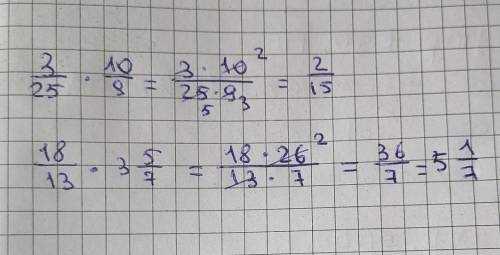 3/25 · 10/9 = 3 · 10 2 / 25 · 9 5 3 = 2/15
18/13 · 3 5/7 = 18 · 26 2 / 13 · 7 = 36/7 = 5 1/7